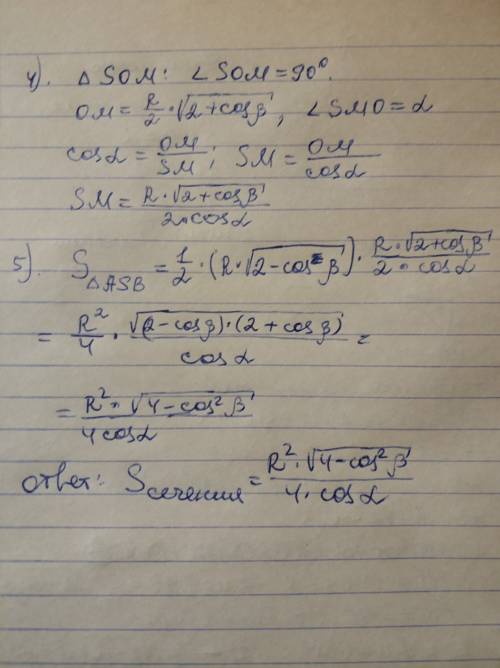 4). △SOM: ∠SOM=90°.
OM=R/2·√(2+cosβ), ∠SMO=α
cosα=OM/SM; SM=OM/cosα
SM=R·√(2+cosβ)/2·cosα
5). S△ASB=1/2·(R·√(2-cosβ))·R·√(2+cosβ)/2·cosα
=R²/4·√((2-cosβ)·(2+cosβ))/cosα=
=R²·√(4-cos²β)/4cosα
ответ: Sсечения=R²·√(4-cos²β)/4·cosα